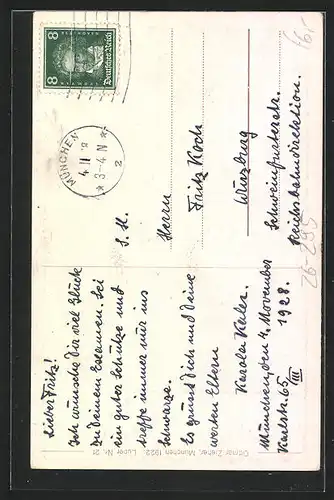 Lieber Fritz!
Ich wünsche Dir viel Glück
zu Deinem Examen. Sei
ein guter Schütze und
treffe immer nur ins
schwarze.
Es grüsst Dich und Deine
werten Eltern
Karola
München, den 4. November
Karlstr. 65 1928.
III
S. H.
Herrn
Fritz Koch
Würzburg
Schweinfurterstr.
Reichsbahndirektion.
8 Deutsches Reich 8
MÜNCHEN
4 11
* 3-4 N *
2
Ottmar Zieher, München 1922
Nr. 21